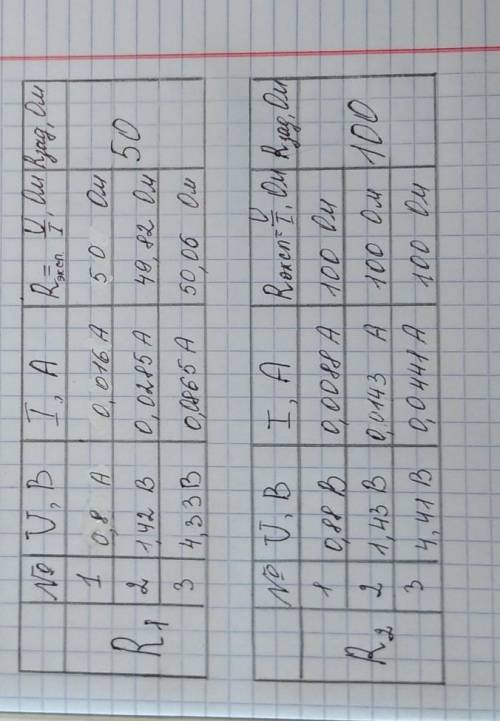 № U, В I, А Rэксп.=U/I, Ом Rзад, Ом
R1
1 0,8 А 0,016 А 50 Ом
2 1,42 В 0,0285 А 49,82 Ом 50
3 4,33 В 0,0865 А 50,06 Ом
№ U, В I, А Rэксп=U/I, Ом Rзад, Ом
R2
1 0,88 В 0,0088 А 100 Ом
2 1,43 В 0,0143 А 100 Ом 100
3 4,41 В 0,0441 А 100 Ом